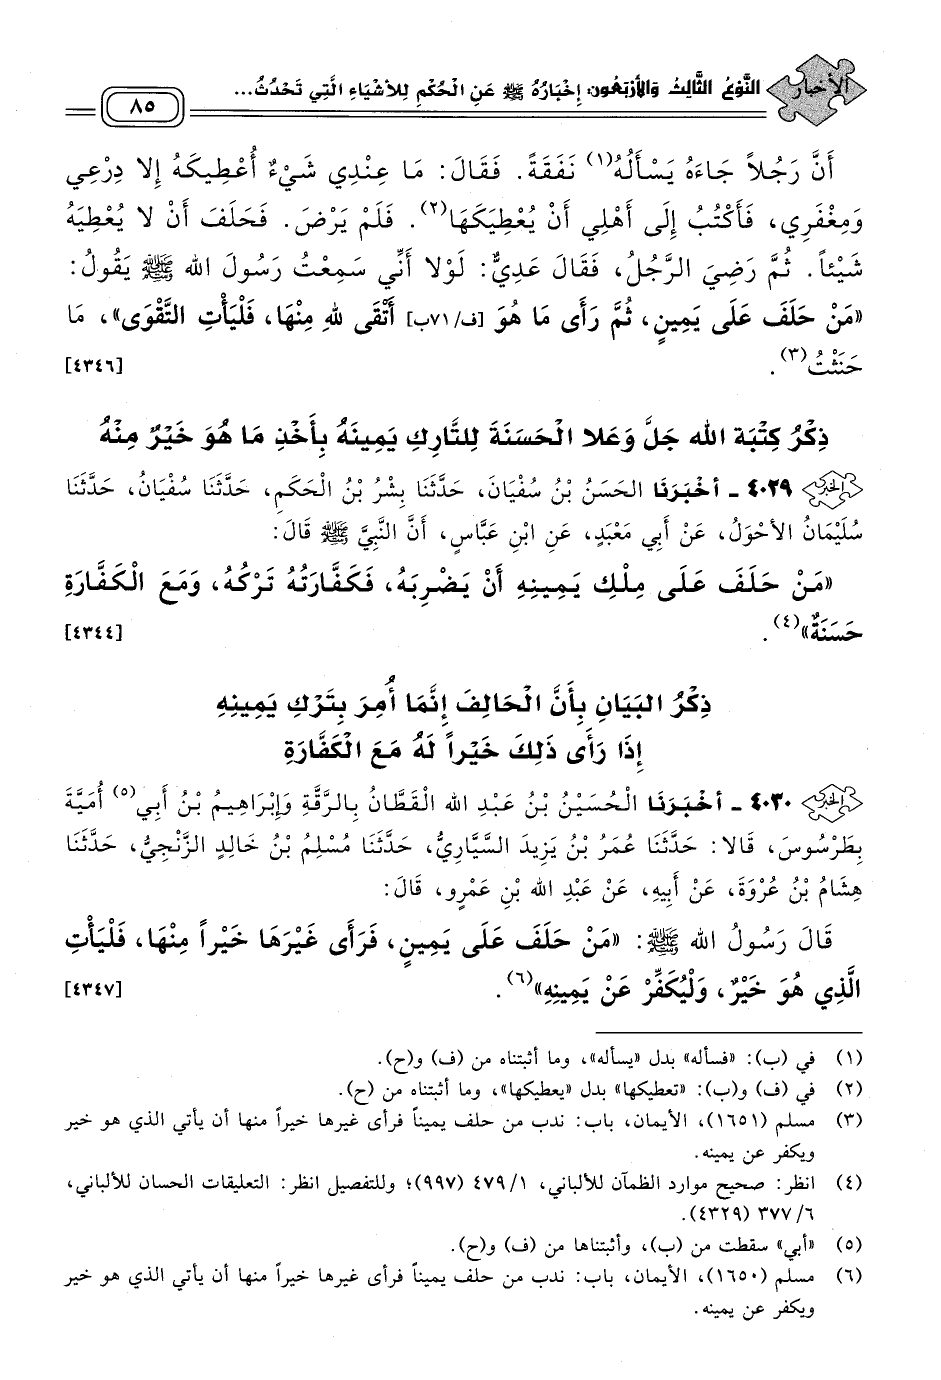 الأخبار
النَّوْعُ الثَّالِثُ وَالأَرْبَعُون: إِخْبَارُهُ ﷺ عَنِ الْحُكْمِ لِلأَشْيَاءِ الَّتِي تَحْدُثُ...
٨٥
أَنَّ رَجُلاً جَاءَهُ يَسْأَلُهُ(١) نَفَقَةً. فَقَالَ: مَا عِنْدِي شَيْءٌ أُعْطِيكَهُ إِلا دِرْعِي
وَمِغْفَرِي، فَأَكْتُبُ إِلَى أَهْلِي أَنْ يُعْطِيَكَهَا(٢). فَلَمْ يَرْضَ. فَحَلَفَ أَنْ لا يُعْطِيَهُ
شَيْئاً. ثُمَّ رَضِيَ الرَّجُلُ، فَقَالَ عَدِيٌّ: لَوْلا أَنِّي سَمِعْتُ رَسُولَ الله ﷺ يَقُولُ:
«مَنْ حَلَفَ عَلَى يَمِينٍ، ثُمَّ رَأَى مَا هُوَ [ف/٧١ب] أَتْقَى للهِ مِنْهَا، فَلْيَأْتِ التَّقْوَى»، مَا
حَنَثْتُ(٣). [٤٣٤٦]
ذِكْرُ كِتْبَةِ الله جَلَّ وَعَلا الْحَسَنَةَ لِلتَّارِكِ يَمِينَهُ بِأَخْذِ مَا هُوَ خَيْرٌ مِنْهُ
٤٠٢٩ - أخْبَرَنَا الحَسَنُ بْنُ سُفْيَانَ، حَدَّثَنَا بِشْرُ بْنُ الْحَكَمِ، حَدَّثَنَا سُفْيَانُ، حَدَّثَنَا
سُلَيْمَانُ الأحْوَلُ، عَنْ أَبِي مَعْبَدٍ، عَنِ ابْنِ عَبَّاسٍ، أَنَّ النَّبِيَّ ﷺ قَالَ:
«مَنْ حَلَفَ عَلَى مِلْكِ يَمِينِهِ أَنْ يَضْرِبَهُ، فَكَفَّارَتُهُ تَرْكُهُ، وَمَعَ الْكَفَّارَةِ
حَسَنَةٌ»(٤). [٤٣٤٤]
ذِكْرُ البَيَانِ بِأَنَّ الْحَالِفَ إِنَّمَا أُمِرَ بِتَرْكِ يَمِينِهِ
إِذَا رَأَى ذَلِكَ خَيْراً لَهُ مَعَ الْكَفَّارَةِ
٤٠٣٠ - أخْبَرَنَا الْحُسَيْنُ بْنُ عَبْدِ الله الْقَطَّانُ بِالرَّقَّةِ وَإِبْرَاهِيمُ بْنُ أَبِي(٥) أُمَيَّةَ
بِطَرْسُوسَ، قَالا: حَدَّثَنَا عُمَرُ بْنُ يَزِيدَ السَّيَّارِيُّ، حَدَّثَنَا مُسْلِمُ بْنُ خَالِدٍ الزَّنْجِيُّ، حَدَّثَنَا
هِشَامُ بْنُ عُرْوَةَ، عَنْ أَبِيهِ، عَنْ عَبْدِ الله بْنِ عَمْرٍو، قَالَ:
قَالَ رَسُولُ الله ﷺ: «مَنْ حَلَفَ عَلَى يَمِينٍ، فَرَأَى غَيْرَهَا خَيْراً مِنْهَا، فَلْيَأْتِ
الَّذِي هُوَ خَيْرٌ، وَلْيُكَفِّرْ عَنْ يَمِينِهِ»(٦). [٤٣٤٧]
(١) في (ب): «فسأله» بدل «يسأله»، وما أثبتناه من (ف) و(ح).
(٢) في (ف) و(ب): «تعطيكها» بدل «يعطيكها»، وما أثبتناه من (ح).
(٣) مسلم (١٦٥١)، الأيمان، باب: ندب من حلف يميناً فرأى غيرها خيراً منها أن يأتي الذي هو خير
ويكفر عن يمينه.
(٤) انظر: صحيح موارد الظمآن للألباني، ١/ ٤٧٩ (٩٩٧)؛ وللتفصيل انظر: التعليقات الحسان للألباني،
٦/ ٣٧٧ (٤٣٢٩).
(٥) «أبي» سقطت من (ب)، وأثبتناها من (ف) و(ح).
(٦) مسلم (١٦٥٠)، الأيمان، باب: ندب من حلف يميناً فرأى غيرها خيراً منها أن يأتي الذي هو خير
ويكفر عن يمينه.